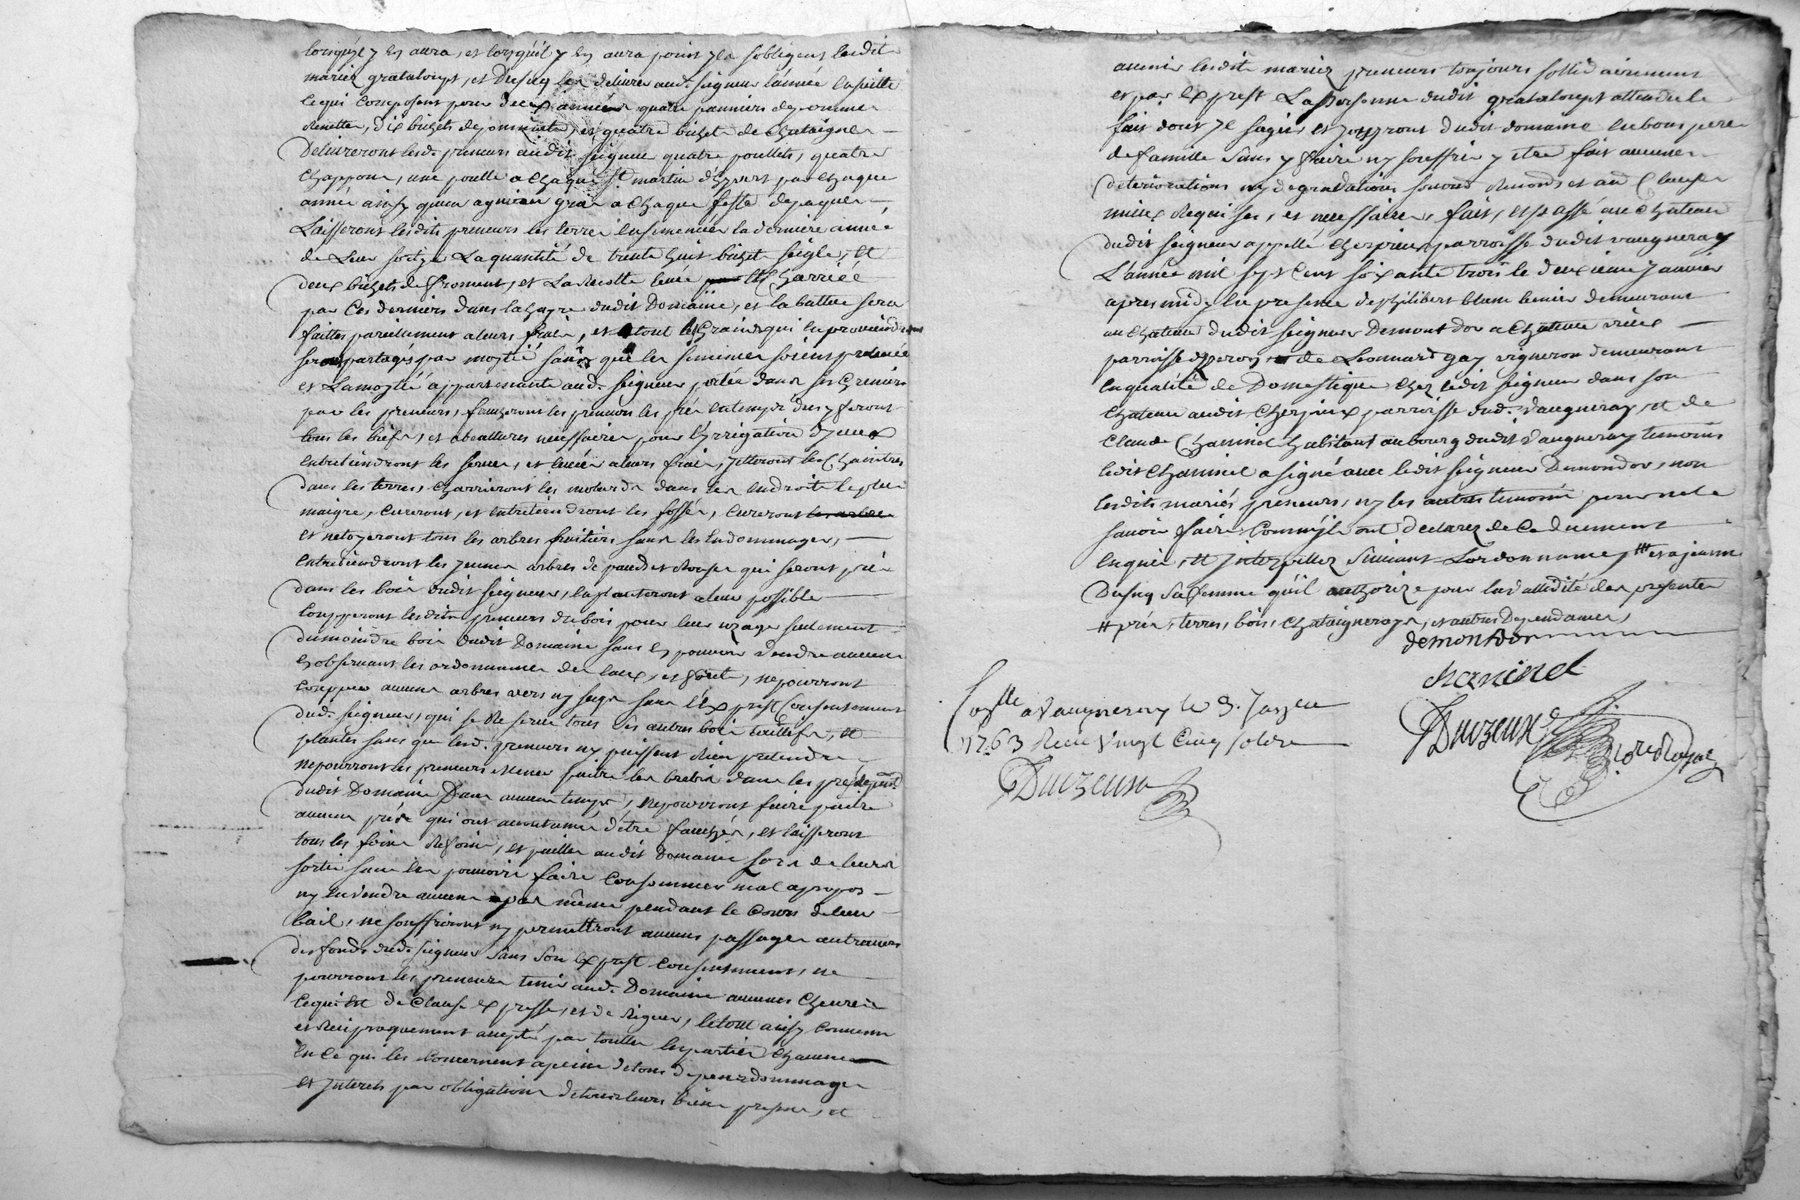 lorsquil y en aura, et lorsquil y en aura point yls sobligent lesdits
mariez grataloup, et Dusuq les delivrer aud. seigneur lannée ensuitte
ce qui composent pour deux années quatre panniers de pommes
Renette, dix bichets de pommes et quatre bichets de chataigner
Delivreront lesd. preneurs audit seigneur quatre poullets, quatre
chappons, une poulle a chaque St. martin dhyvert par chaque
année ainsy quun agneau gras a chaque feste de paques
Laisseront lesdits preneurs les terres ensemencées la derniere année
de Leur sortye La quantité de trente huit bichets seigle, et
deux bichets de froment, et La Recolte levée charriée
par Ces derniers dans la grange dudit Domaine, et la battue sera
faittes pareillement a leurs frais, et tout les Grains qui en proviendront
seront partagés par moytié sans que les semences soient prelevées
et Lamoytié appartenante aud. seigneur portée dans ses Greniers
par les preneurs, faucheront les preneurs les prés en temps dus y feront
tous les biefs, et abeattures necessaires pour L'irrigation dyceux
entretiendront les serves, et levées a leurs frais, jetteront les Chaintres
dans les terres, charrieront les moterds dans les endroits le plus
maigre, cureront, et entretiendront les fossés, cureront les arbres
et netoyeront tous les arbres fruitiers sans les endommager,
entretiendront les jeunes arbres de paux et Ronses qui seront pris
dans les bois dudit seigneur, en planteront a leur possible
Coupperont lesdits preneurs du bois pour leur uzage seulement
du moindre bois dudit Domaine sans en pouvoir vendre aucun
en observant les ordonnances des Eaux, et forets, ne pourront
coupper aucuns arbres vers ny secqs sans l'Exprest Consentement
dud. seigneur, qui se Reserve tous les autres bois taillefs, et
plantes sans que lesd. preneurs ny puissent Rien pretendre
ne pourront les preneurs mener paitre les brebis dans les prés
dudit Domaine Dans aucun temps, ne pourront faire paitre
aucuns prés qui ont accoutumé d'etre fauchés, et laisseront
tous les foins Refoins, et pailles audit Domaine lors de leurs
sortie sans les pouvoir faire Consommer mal apropos
ny en vendre aucuns pas même pendant le Cours de leur
bail, ne souffriront ny permettront aucuns passages autravers
des fonds dud. seigneur sans son Exprest Consentement, ne
pourront les preneurs tenir aud. Domaine aucunes Chevres
ce qui est de Clause Expresse, et de Rigueur, le tout ainsy Convenu
et Reciproquement accepté par touttes les parties chacune
en Ce qui les Concernent a peine de tous depens dommages
et Interets par obligation de tous leurs biens presens, et
avenir lesdits mariez preneurs toujours sollidairement
et par Exprest La personne dudit grataloup attendu le
fait dont Il sagit et jouyront dudit domaine en bons pere
de famille sans y faire ny souffrir y etre fait aucunes
deteriorations ny degradations sous Renonds et aud Clauses
mieux Requises, et necessaires, fait, et passé au Chateau
dudit seigneur appellé Cherpieux parroisse dudit vaugneray
L'année mil sept Cent soixante trois le deuxieme janvier
apres midy En presence de philibert blanc beuier demeurant
au chateau dudit seigneur Demont dor a Chateau vieux
parroisse dyzeron de Leonnard gay vigneron demeurant
en qualité de Domestique chez ledit seigneur dans son
chateau audit Cherpieux parroisse dud. Vaugneray, et de
Claude Chaninel habitant au bourg dudit Vaugneray temoins
ledit Chaninel a signé avec ledit seigneur Demondor, non
lesdits mariés preneurs, ny les autres temoins pour ne le
savoir faire Comme yls ont Declarez de Ce duement
enquis, et Interpellez Suivant Lordonnance, et a jeanne
Dusuq sa femme qu'il authorize pour la validité des presentes
# prés, terres, bois, chataignerays, et autres Dependances,
demondor
chaninel
Duvzeux
Nore Royal
Conlle a Vaugneray le 3. Janvier
1763 Reçu Vingt Cinq sols
Duvzeux